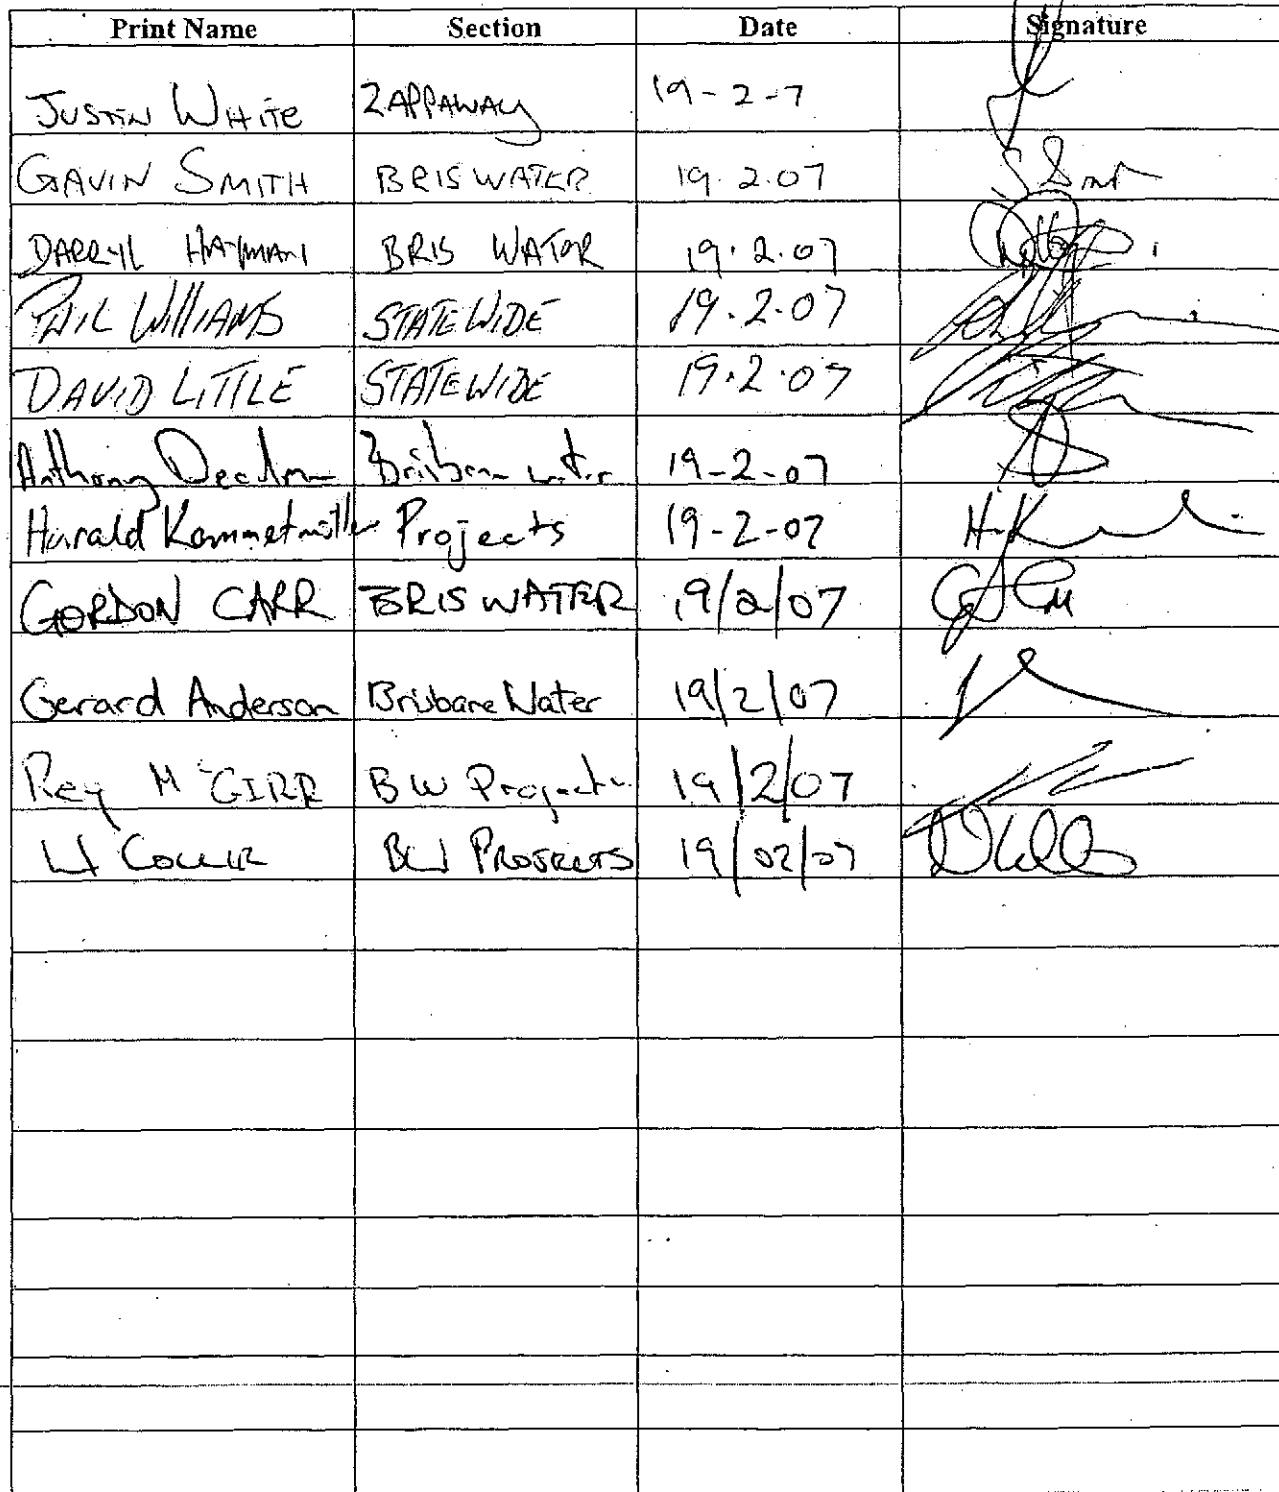 Print Name Section Date Signature
JUSTIN WHITE ZAPPAWAY 19-2-7
GAVIN SMITH BRISWATER 19.2.07
DARRYL HAYMAN BRIS WATOR 19.2.07
PHIL WILLIAMS STATEWIDE 19.2.07
DAVID LITTLE STATEWIDE 19.2.07
Anthony Brisbane water 19-2-07
Harald Kommetmüller Projects 19-2-07
GORDON CARR BRISWATER 19/2/07
Gerard Anderson Brisbane Water 19/2/07
Reg McGIRR BW Projects 19/2/07
BW PROJECTS 19/02/07